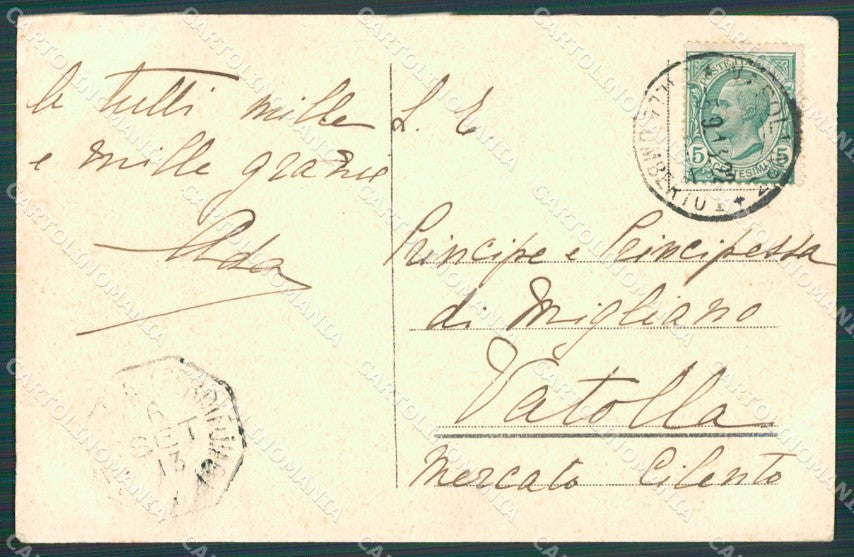 a tutti mille
e mille grazie
Ada
L. E
Principe e Principessa
di Migliano
Vatolla
Mercato Cilento
5 CENTESIMI 5
CARTOLINOMANIA